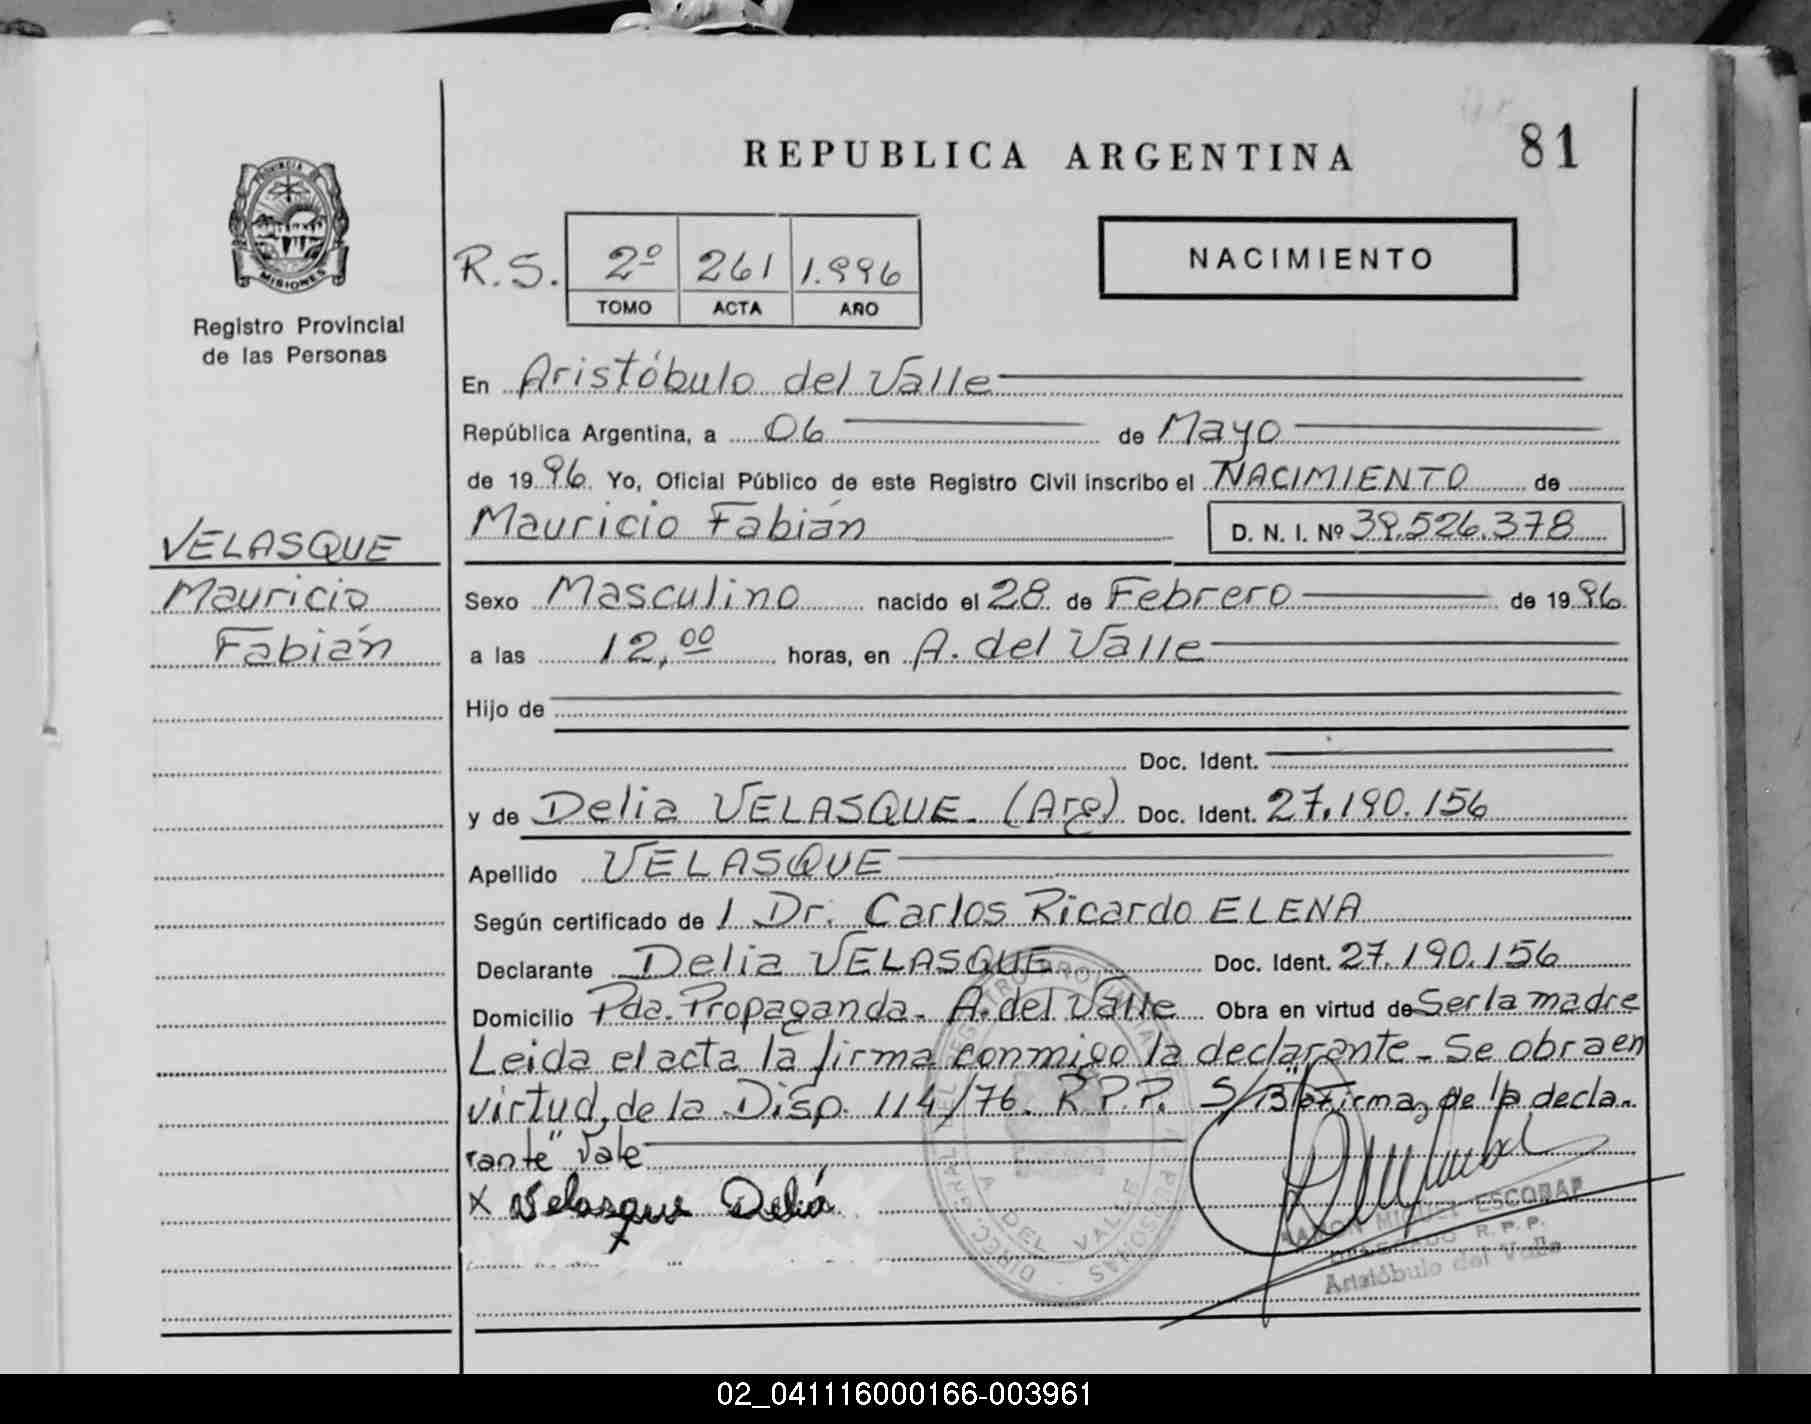 REPUBLICA ARGENTINA
81
PROVINCIA DE
MISIONES
Registro Provincial
de las Personas
R.S. 2º 261 1.996
TOMO ACTA AÑO
NACIMIENTO
En Aristóbulo del Valle
República Argentina, a 06 de Mayo
de 1996 Yo, Oficial Público de este Registro Civil inscribo el NACIMIENTO de
Mauricio Fabián D. N. I. Nº 39.526.378
VELASQUE
Mauricio
Fabián
Sexo Masculino nacido el 28 de Febrero de 1996
a las 12,00 horas, en A. del Valle
Hijo de
Doc. Ident.
y de Delia VELASQUE. (Arg) Doc. Ident. 27.190.156
Apellido VELASQUE
Según certificado de 1 Dr. Carlos Ricardo ELENA
Declarante Delia VELASQUE Doc. Ident. 27.190.156
Domicilio Pda. Propaganda. A. del Valle Obra en virtud de Ser la madre
Leida el acta la firma conmigo la declarante. Se obra en
virtud, de la Disp. 114/76. R.P.P. S/B "Firma, de la decla-
rante" Vale
X Velasque Delia
RAMON MIGUEL ESCOBAR
DELEGADO R. P. P.
Aristóbulo del Valle
A DEL VALLE
02_041116000166-003961